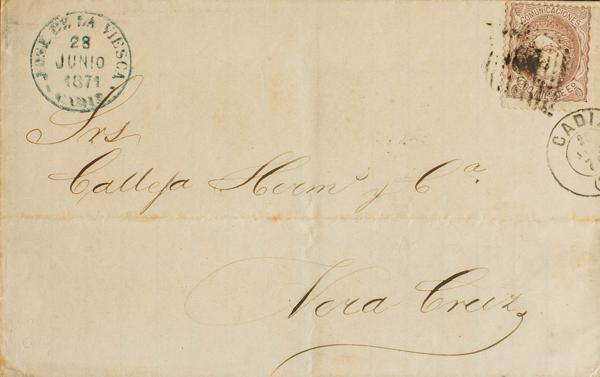 JOSE DE LA VIESCA
28
JUNIO
1871
CADIZ
COMUNICACIONES
CADIZ
Srs
Calleja Herms y Ca.
Vera Cruz